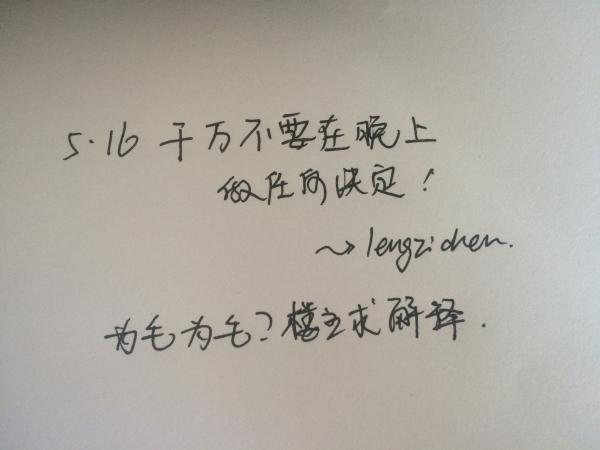 5.16 千万不要在晚上
做任何决定！
~> lengzichen.
为毛为毛？楼主求解释.